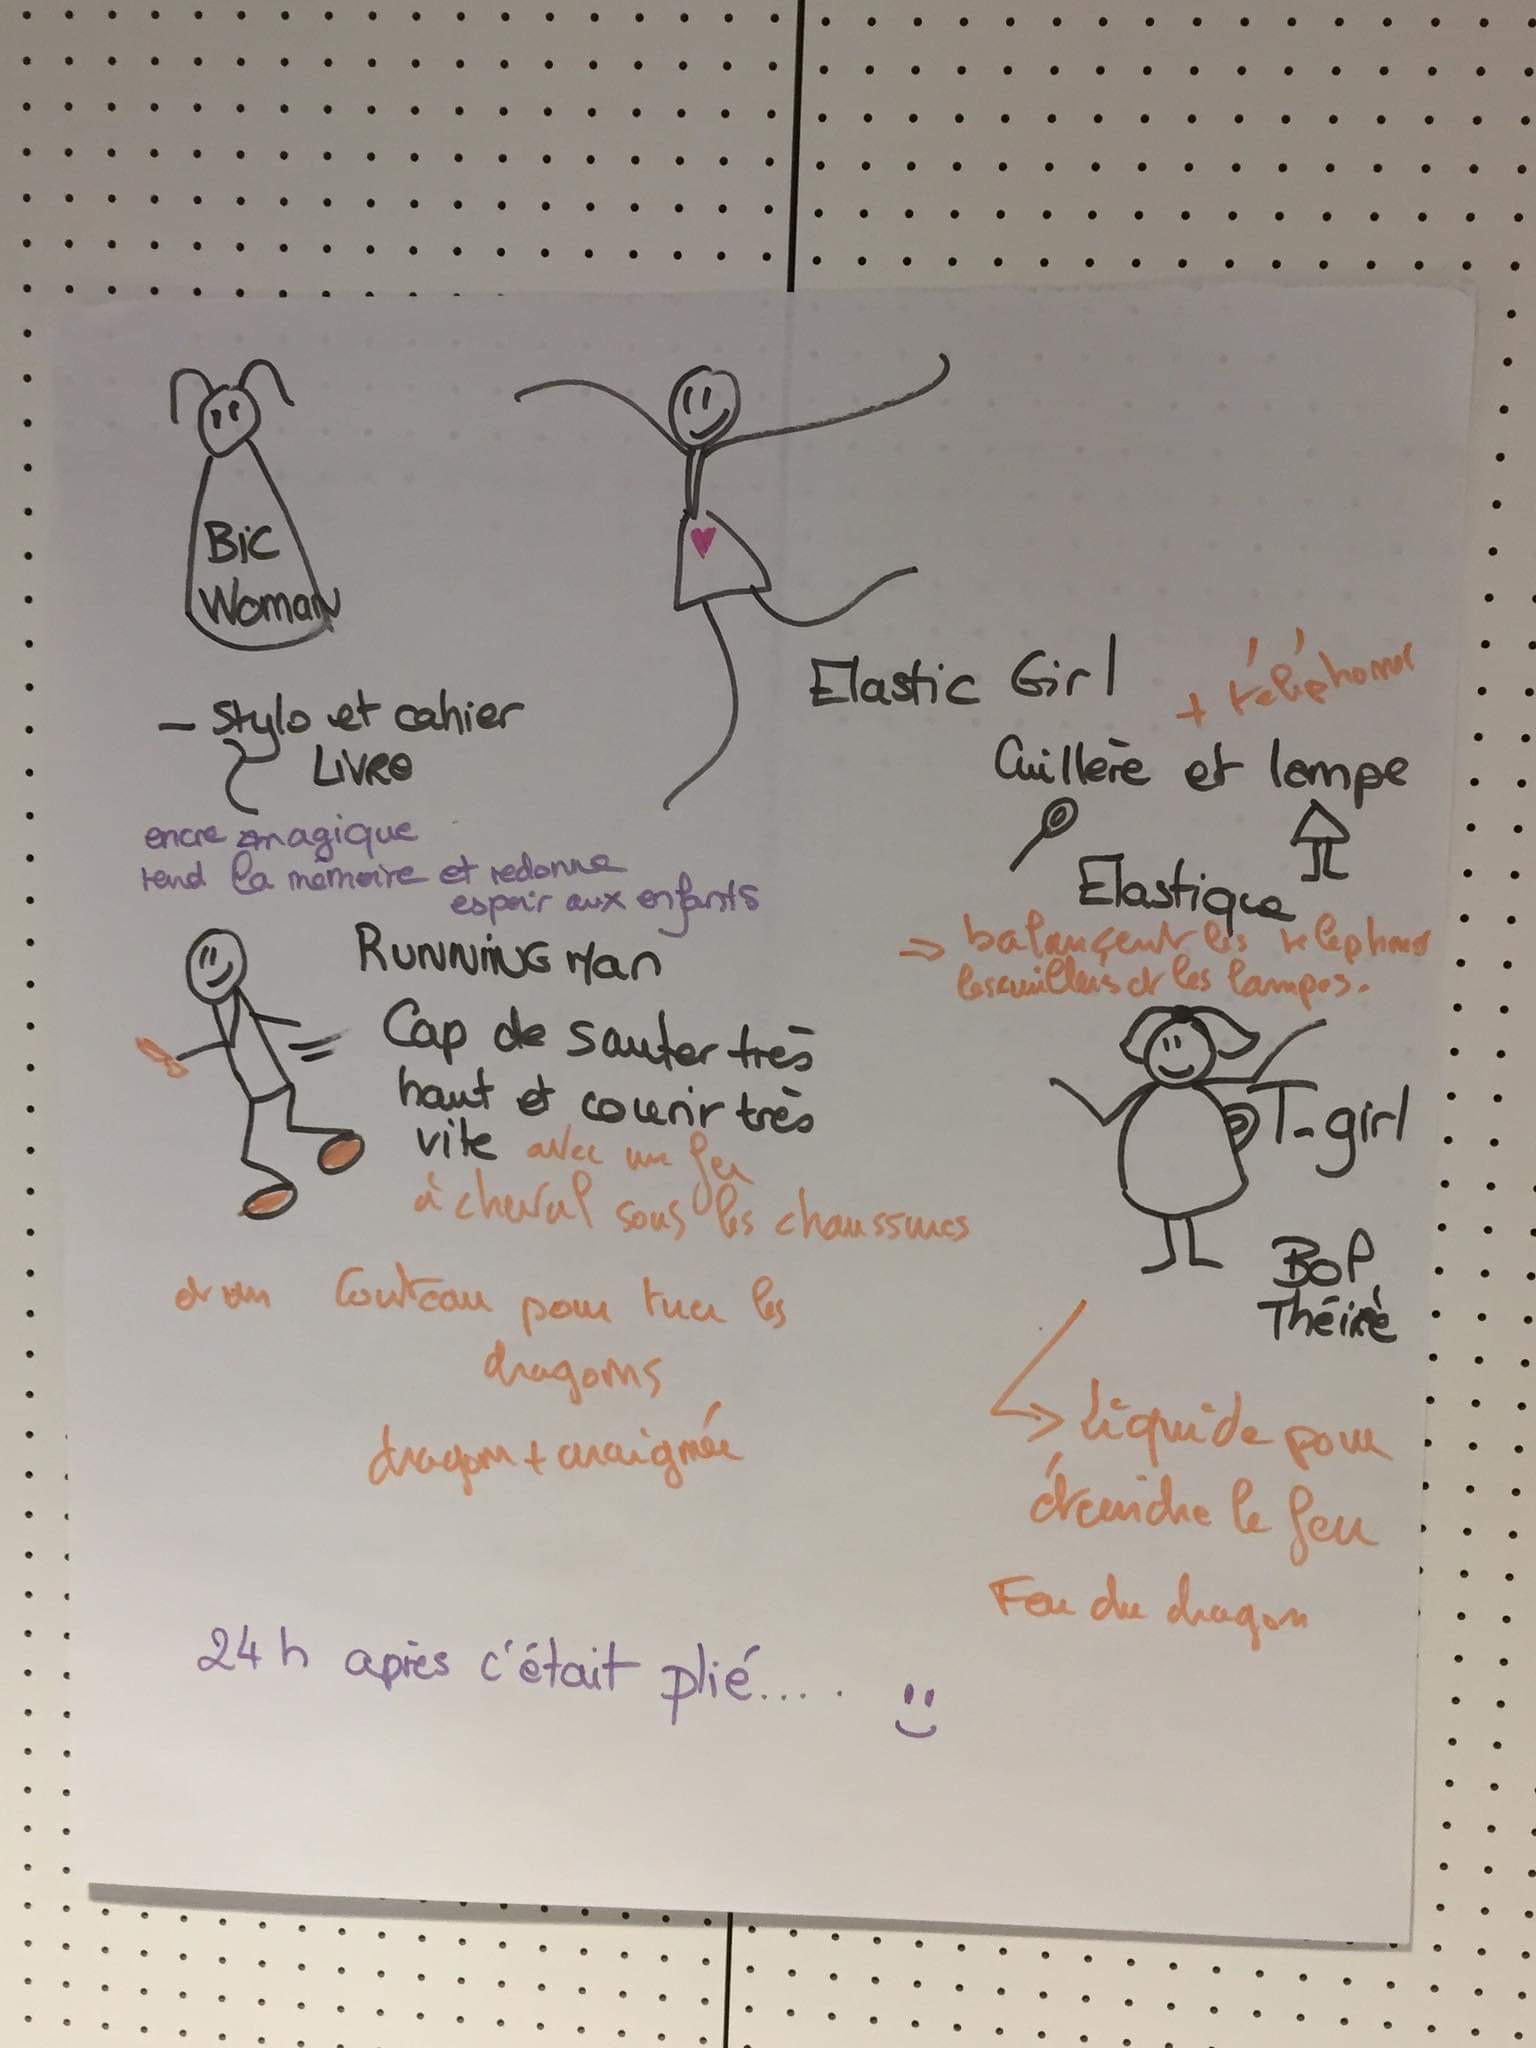 Bic
Woman
Elastic Girl
+ téléphones
- stylo et cahier
Livre
Cuillère et lampe
encre magique
rend la mémoire et redonne
espoir aux enfants
Elastique
=> balançent les telephones
les cuillers et les lampes.
Running Man
Cap de sauter très
haut et courir très
vite avec un fer
à cheval sous les chaussures
et un couteau pour tuer les
dragons
dragon + araignée
T-girl
Bol
liquide pour
éteindre le feu
Feu du dragon
24h après c'était plié.....